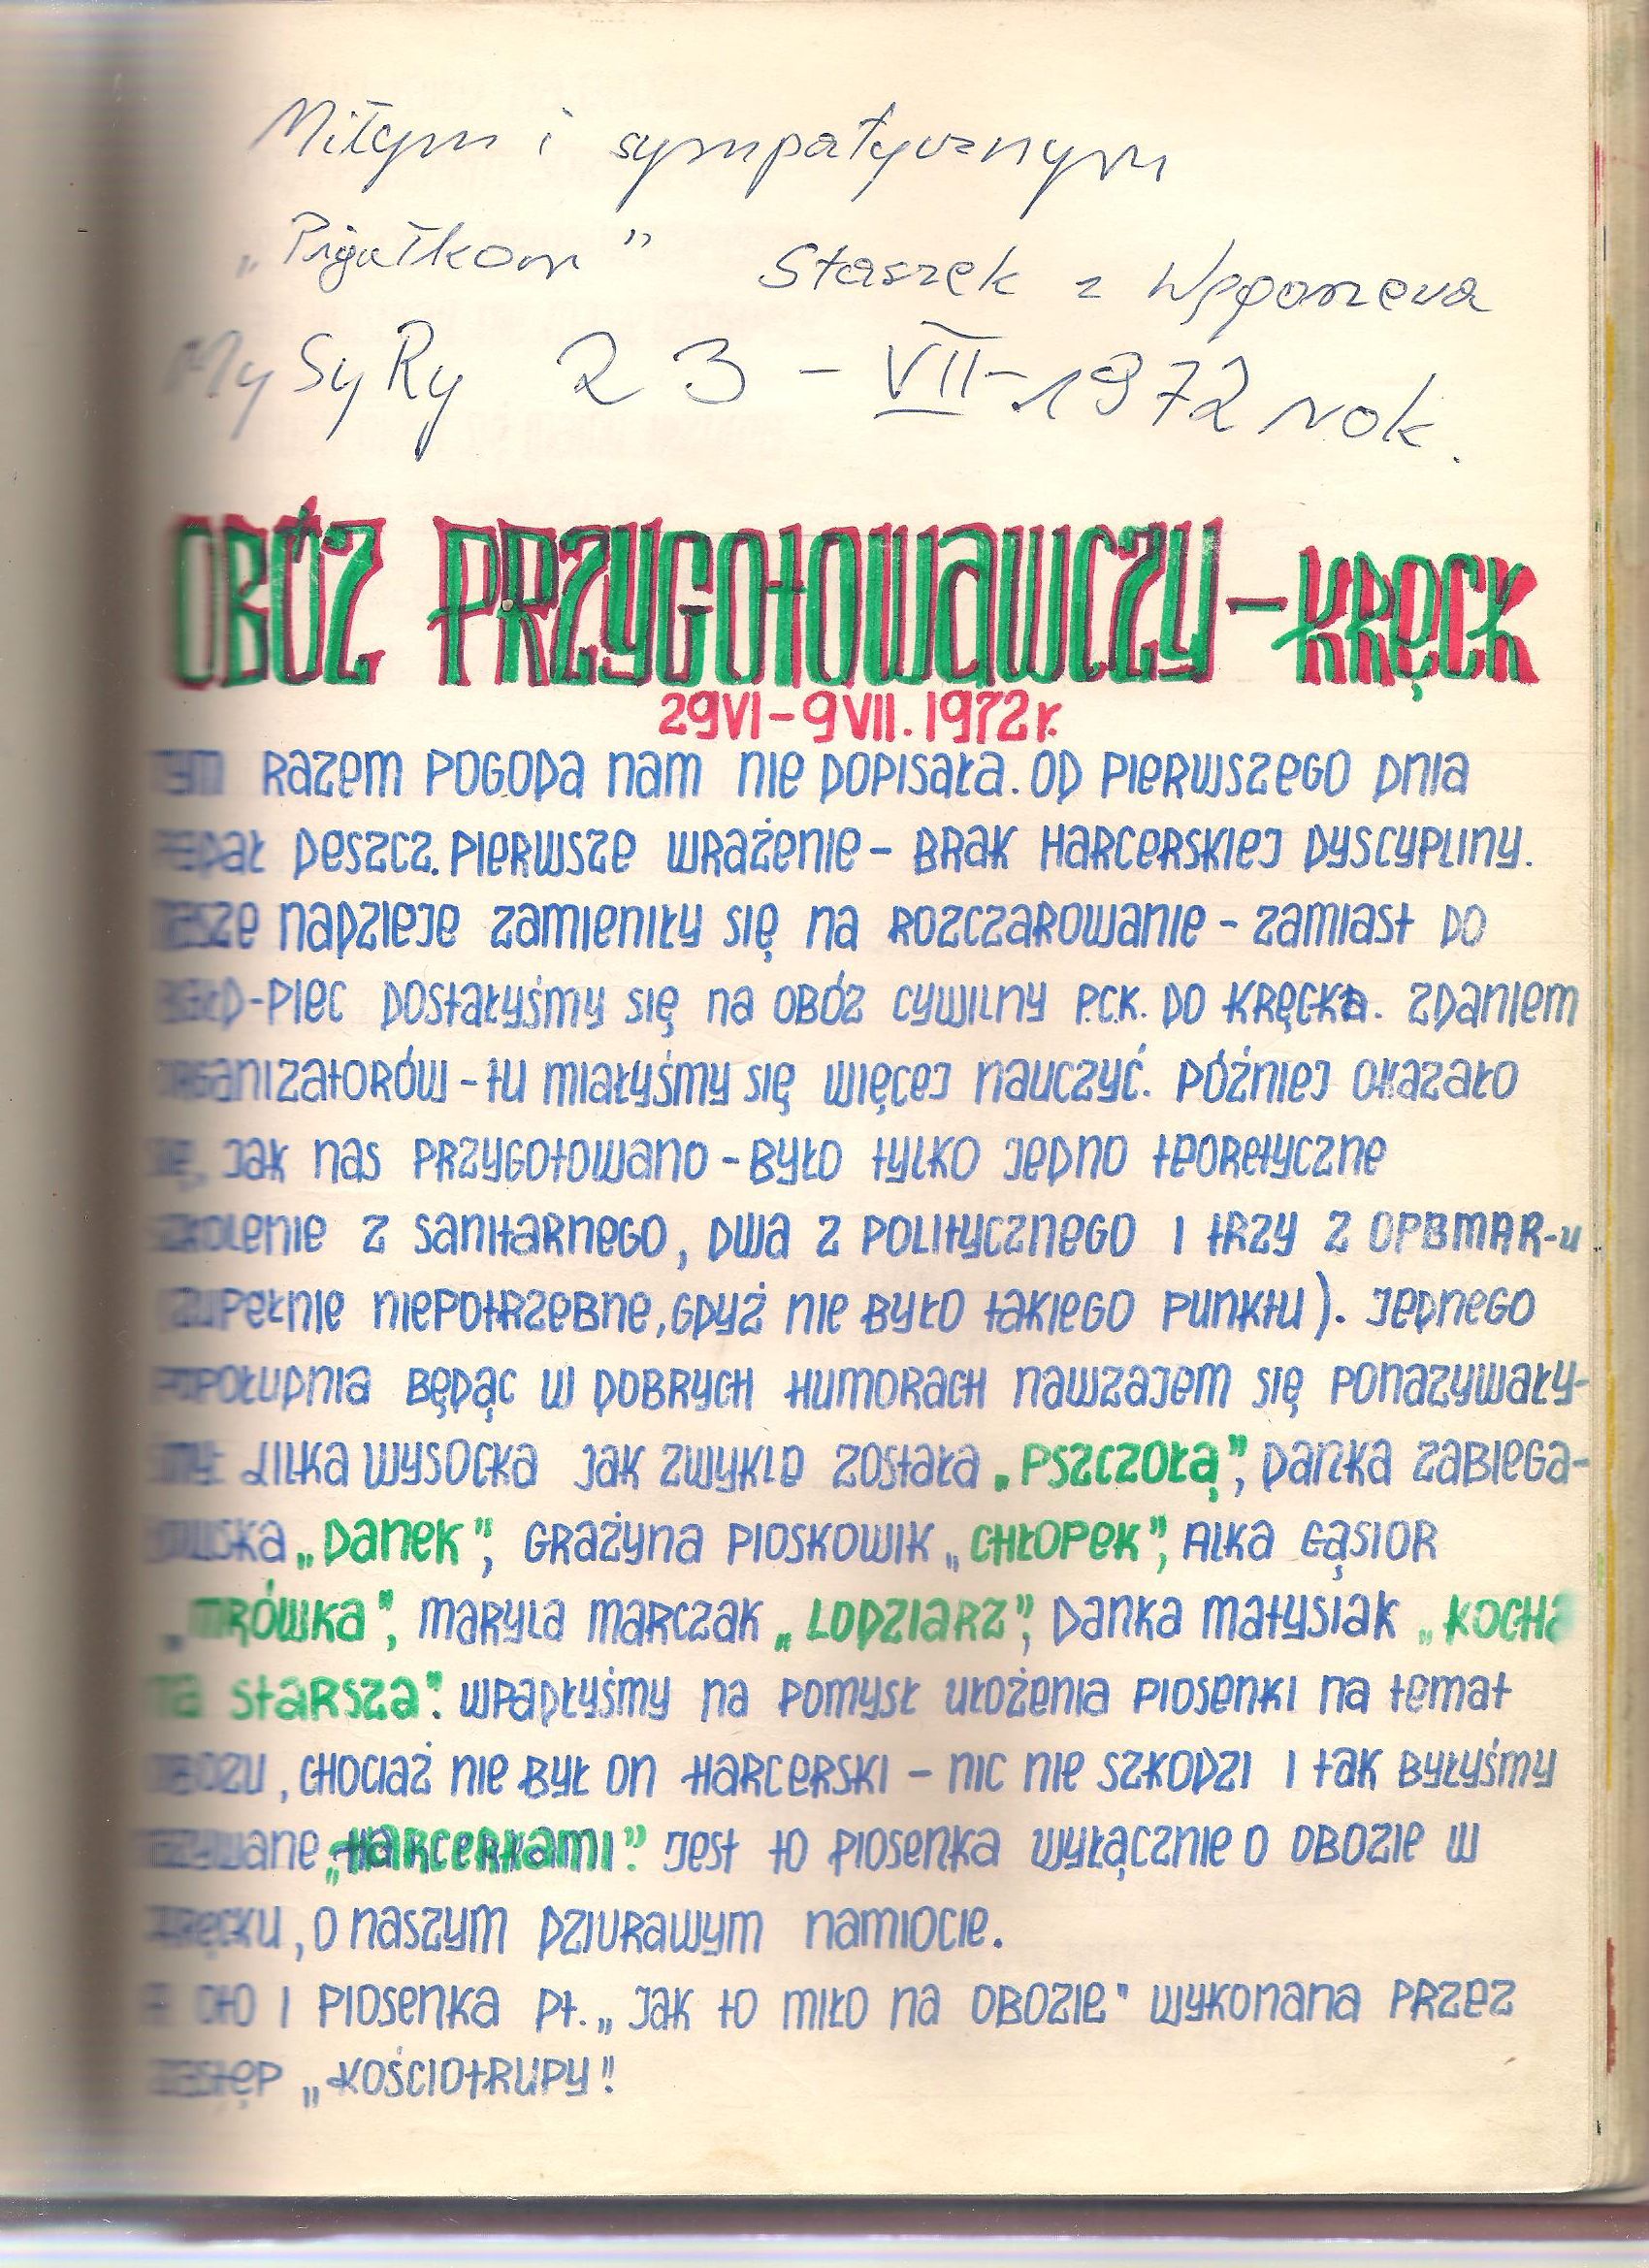 Miłym i sympatycznym
„Pigułkom” Staszek z Węgorzewa
MySyRy 23 – VII – 1972 rok.
OBÓZ PRZYGOTOWAWCZY – KRĘCK
29 VI – 9 VII. 1972 r.
TYM RAZEM POGODA NAM NIE DOPISAŁA. OD PIERWSZEGO DNIA
DESZCZ. PIERWSZE WRAŻENIE – BRAK HARCERSKIEJ DYSCYPLINY.
NASZE NADZIEJE ZAMIENIŁY SIĘ NA ROZCZAROWANIE – ZAMIAST DO
-PIEC DOSTAŁYŚMY SIĘ NA OBÓZ CYWILNY P.C.K. DO KRĘCKA. ZDANIEM
ORGANIZATORÓW – TU MIAŁYŚMY SIĘ WIĘCEJ NAUCZYĆ. PÓŹNIEJ OKAZAŁO
SIĘ, JAK NAS PRZYGOTOWANO – BYŁO TYLKO JEDNO TEORETYCZNE
SZKOLENIE Z SANITARNEGO, DWA Z POLITYCZNEGO I TRZY Z OPBMAR-u
ZUPEŁNIE NIEPOTRZEBNE, GDYŻ NIE BYŁO TAKIEGO PUNKTU). JEDNEGO
POPOŁUDNIA BĘDĄC W DOBRYCH HUMORACH NAWZAJEM SIĘ PONAZYWAŁY-
ŚMY: LILKA WYSOCKA JAK ZWYKLE ZOSTAŁA „PSZCZOŁĄ”, DANKA ZABIEGA-
ŁOWSKA „DANEK”, GRAŻYNA PIOSKOWIK „CHŁOPEK”, ALKA GĄSIOR
„MRÓWKA”, MARYLA MARCZAK „LODZIARZ”, DANKA MATYSIAK „KOCHA
NA STARSZA”. WPADŁYŚMY NA POMYSŁ UŁOŻENIA PIOSENKI NA TEMAT
OBOZU, CHOCIAŻ NIE BYŁ ON HARCERSKI – NIC NIE SZKODZI I TAK BYŁYŚMY
NAZYWANE „HARCERKAMI”. JEST TO PIOSENKA WYŁĄCZNIE O OBOZIE W
KRĘCKU, O NASZYM DZIURAWYM NAMIOCIE.
A OTO I PIOSENKA PT. „JAK TO MIŁO NA OBOZIE” WYKONANA PRZEZ
ZASTĘP „KOŚCIOTRUPY”!